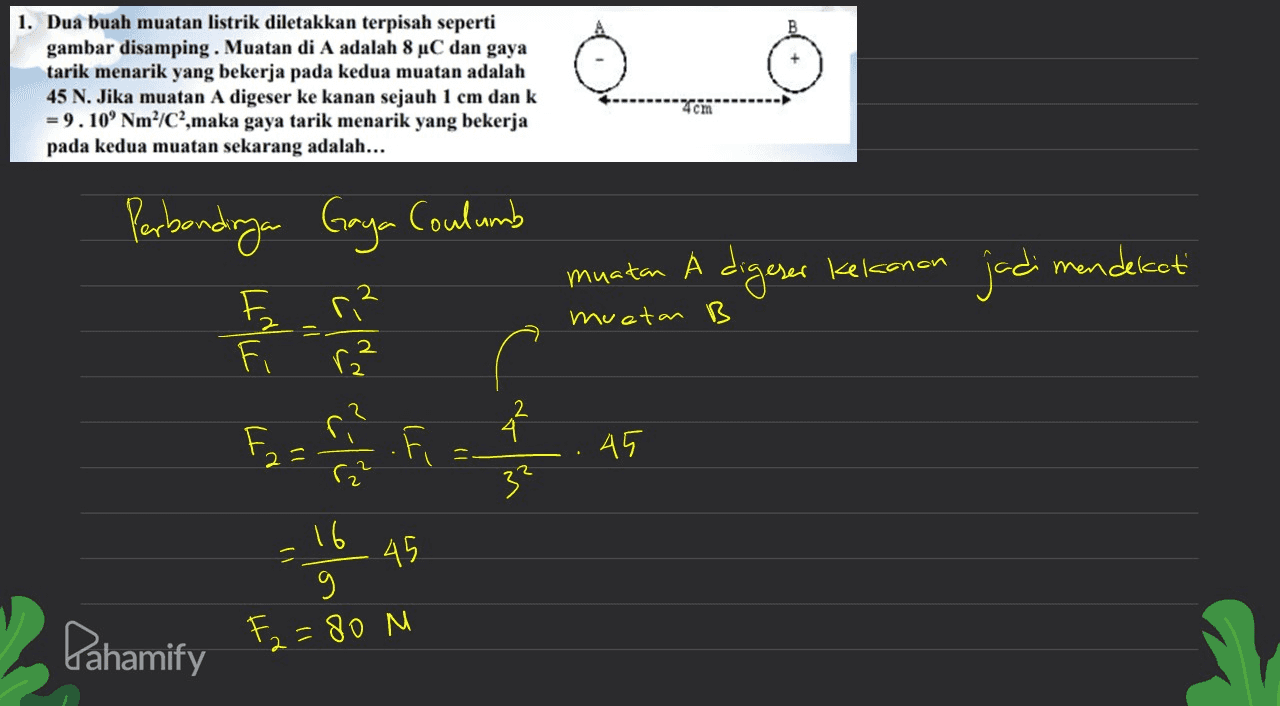 1. Dua buah muatan listrik diletakkan terpisah seperti
gambar disamping . Muatan di A adalah 8 µC dan gaya
tarik menarik yang bekerja pada kedua muatan adalah
45 N. Jika muatan A digeser ke kanan sejauh 1 cm dan k
= 9 . 10⁹ Nm²/C²,maka gaya tarik menarik yang bekerja
pada kedua muatan sekarang adalah...
A B
- +
4cm
Perbandingan Gaya Coulumb
muatan A digeser kekanan jadi mendekati
muatan B
F₂/F₁ = r₁²/r₂²
F₂ = r₁²/r₂² . F₁ = 4²/3² . 45
= 16/9 45
F₂ = 80 N
Pahamify